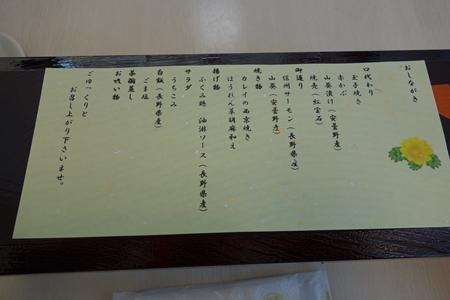 おしながき
口代わり
玉子焼き
赤かぶ
山葵漬け(安曇野産)
焼売(紅宝石)
御造り
信州サーモン(長野県産)
山葵(安曇野産)
焼き物
カレイの西京焼き
ほうれん草胡麻和え
揚げ物
ふくみ鶏 油淋ソース(長野県産)
サラダ
うちこみ
白飯(長野県産)
ごま塩
茶碗蒸し
お吸い物
ごゆっくりと
お召し上がり下さいませ。